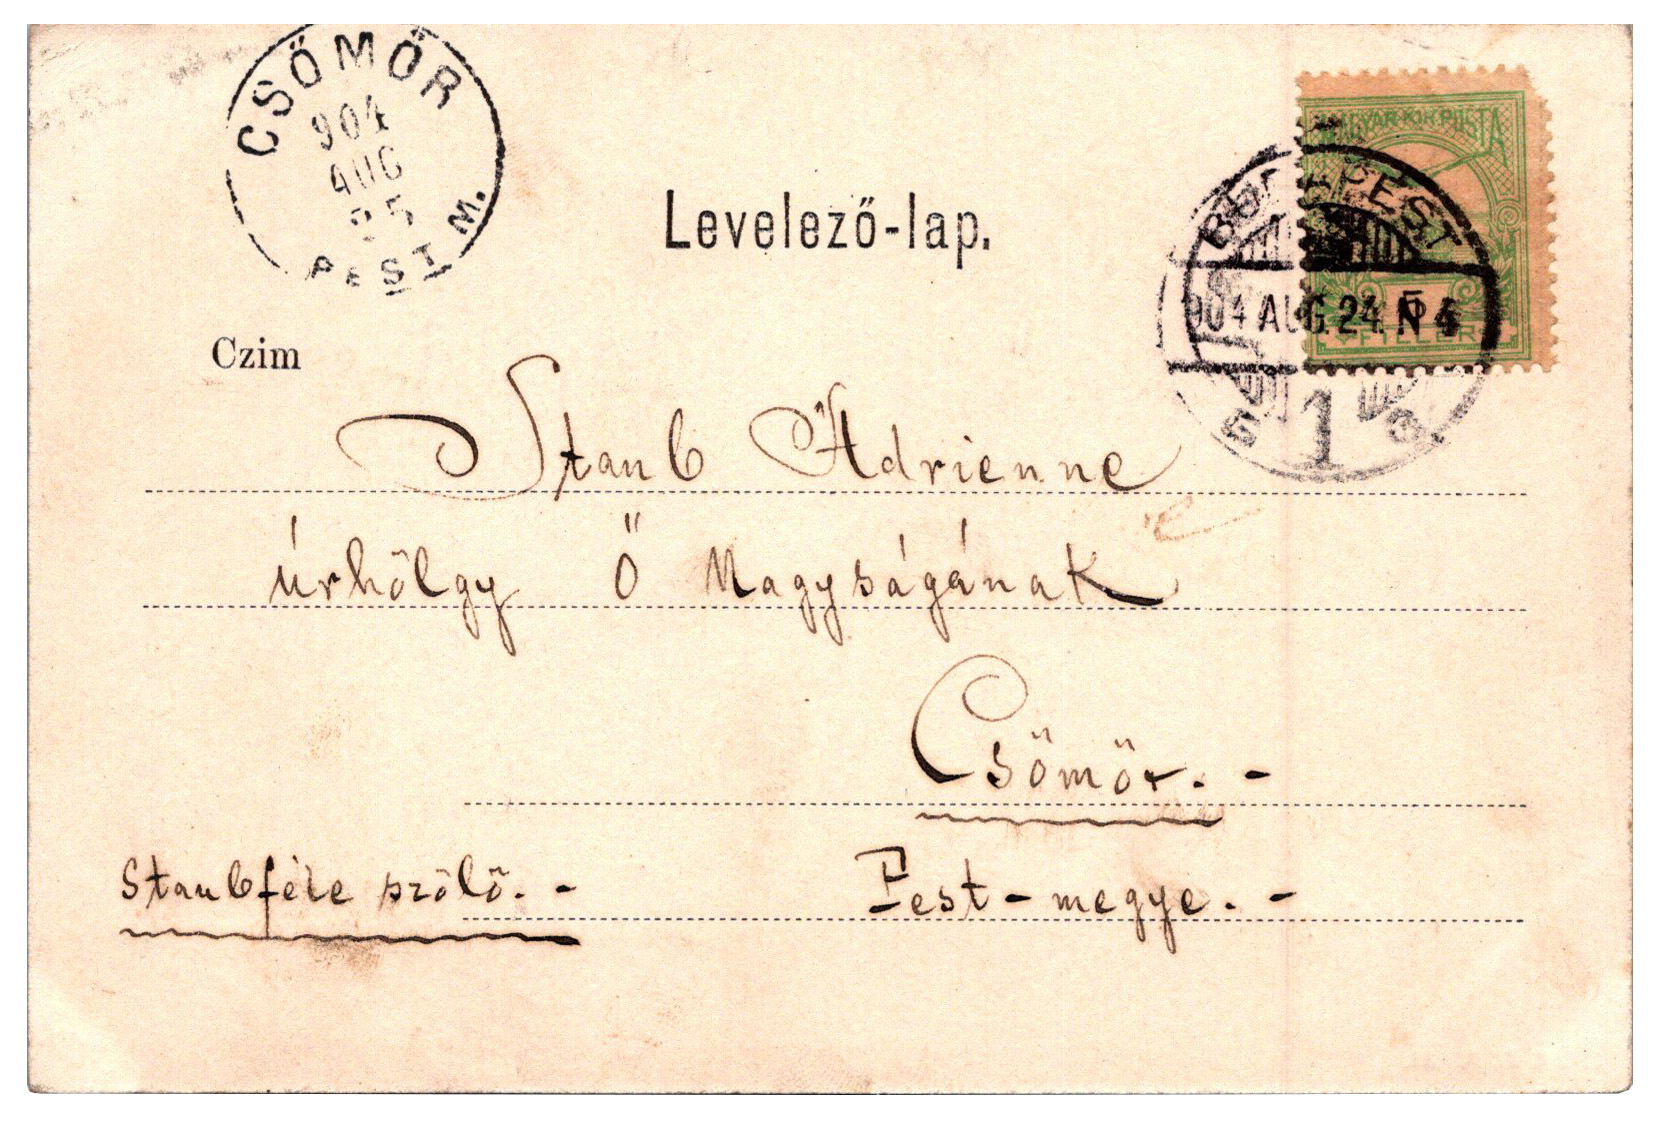 CSÖMÖR
904
AUG
25
PEST M.
Levelező-lap.
MAGYAR KIR. POSTA
BUDAPEST
904 AUG. 24. N 4
FILLÉR
1
Czim
Staub Adrienne
úrhölgy Ő Nagyságának
Csömör. -
Staubféle szőlő. -
Pest-megye. -